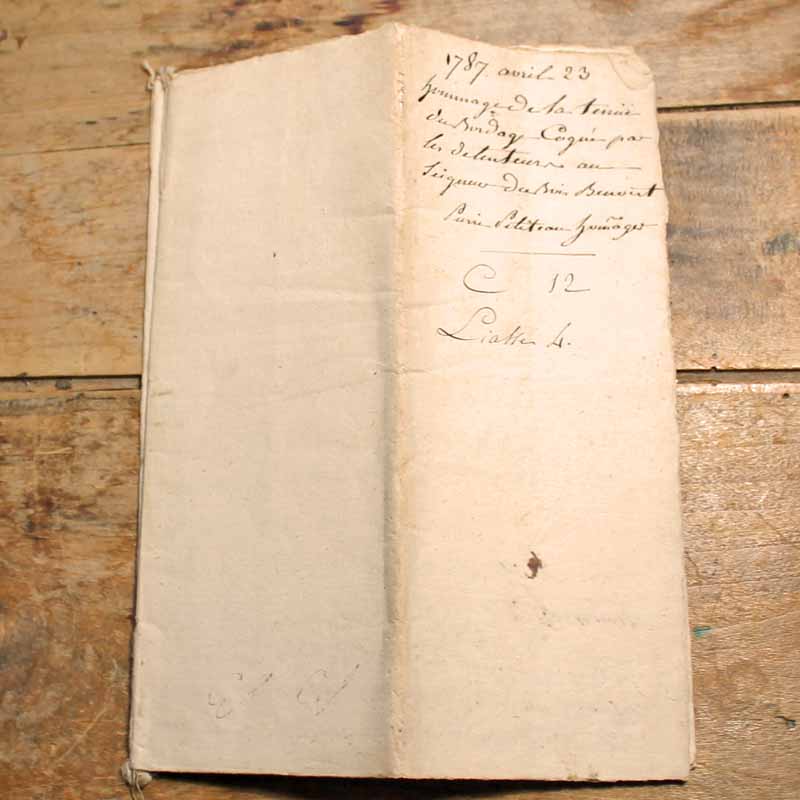 1787. avril 23
hommage de la tenüe
du Bordage Coqué par
les detenteurs au
Seigneur du Bois Benoist
Pierre Petiteau hom̃ager
C 12
Liasse 4.